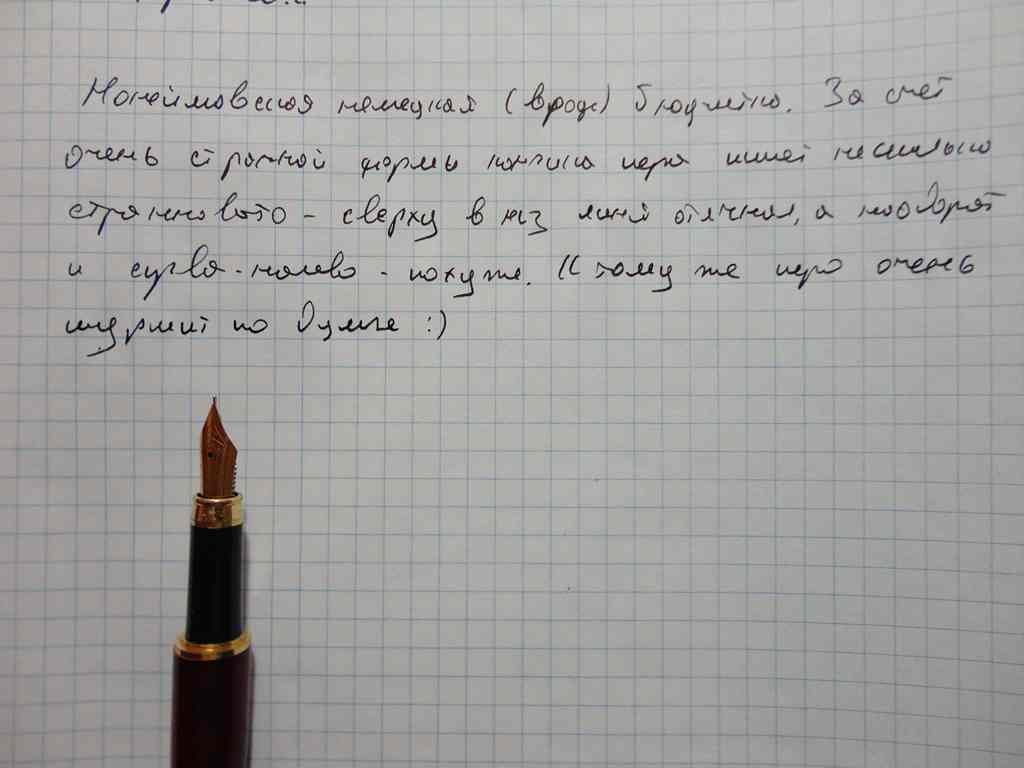 Нонеймовская немецкая (вроде) бюджетка. За счет
очень странной формы кончика перо пишет несколько
странновато - сверху в низ линия отличная, а наоборот
и справа-налево - похуже. К тому же перо очень
шуршит по бумаге :)